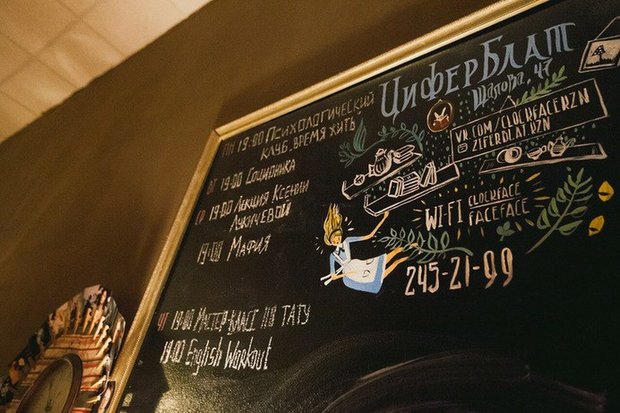 ЦиферБлат
Щапова, 47
ПН 19:00 Психологический
клуб "Время жить
ВТ 19:00 Соционика
СР 19:00 Лекция Ксении
Лукичевой
19:00 Мафия
ЧТ 19:00 Мастер-класс по тату
19:00 English Workout
VK.COM/CLOCKFACEKZN
ZIFERBLATKZN
WI-FI CLOCKFACE
FACEFACE
245-21-99